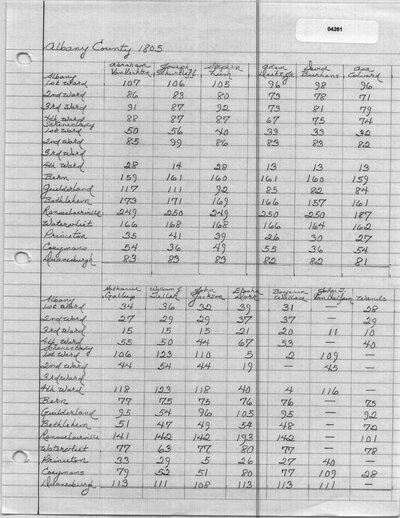 04261
Albany County 1805
Abraham Joseph Stephen Adam David Asa
Van Vechten Lush Burhans Colvard
Albany
1st Ward 107 106 105 96 98 96
2nd Ward 86 83 80 73 78 71
3rd Ward 91 87 92 73 81 79
4th Ward 88 87 87 67 75 74
Schenectady
1st Ward 50 56 40 33 33 32
2nd Ward 85 99 86 83 83 82
3rd Ward
4th Ward 28 14 28 13 13 13
Bern 159 161 160 161 160 159
Guilderland 117 111 92 85 82 84
Bethlehem 173 171 169 166 157 161
Rensselaerville 249 250 249 250 250 187
Watervliet 166 168 168 166 164 162
Princeton 35 41 39 26 30 27
Coeymans 54 36 49 55 36 54
Duanesburgh 83 83 83 82 82 81
Nathaniel William J. John Ebenr Benjamin John J.
Gallup Jackson Wallace Wands
Albany
1st Ward 34 36 32 39 31 28
2nd Ward 27 29 29 37 37 — 29
3rd Ward 15 15 15 21 20 11 10
4th Ward 55 50 44 67 53 — 40
Schenectady
1st Ward 106 123 110 5 2 109 —
2nd Ward 44 54 44 19 — 45 —
3rd Ward
4th Ward 118 123 118 40 4 116 —
Bern 77 75 75 76 76 — 75
Guilderland 95 54 96 105 95 — 92
Bethlehem 51 47 49 54 48 — 72
Rensselaerville 141 142 142 193 142 — 101
Watervliet 77 63 77 80 77 — 78
Princeton 33 29 5 26 27 40 —
Coeymans 79 52 51 80 77 109 28
Duanesburgh 113 111 108 113 113 111 —